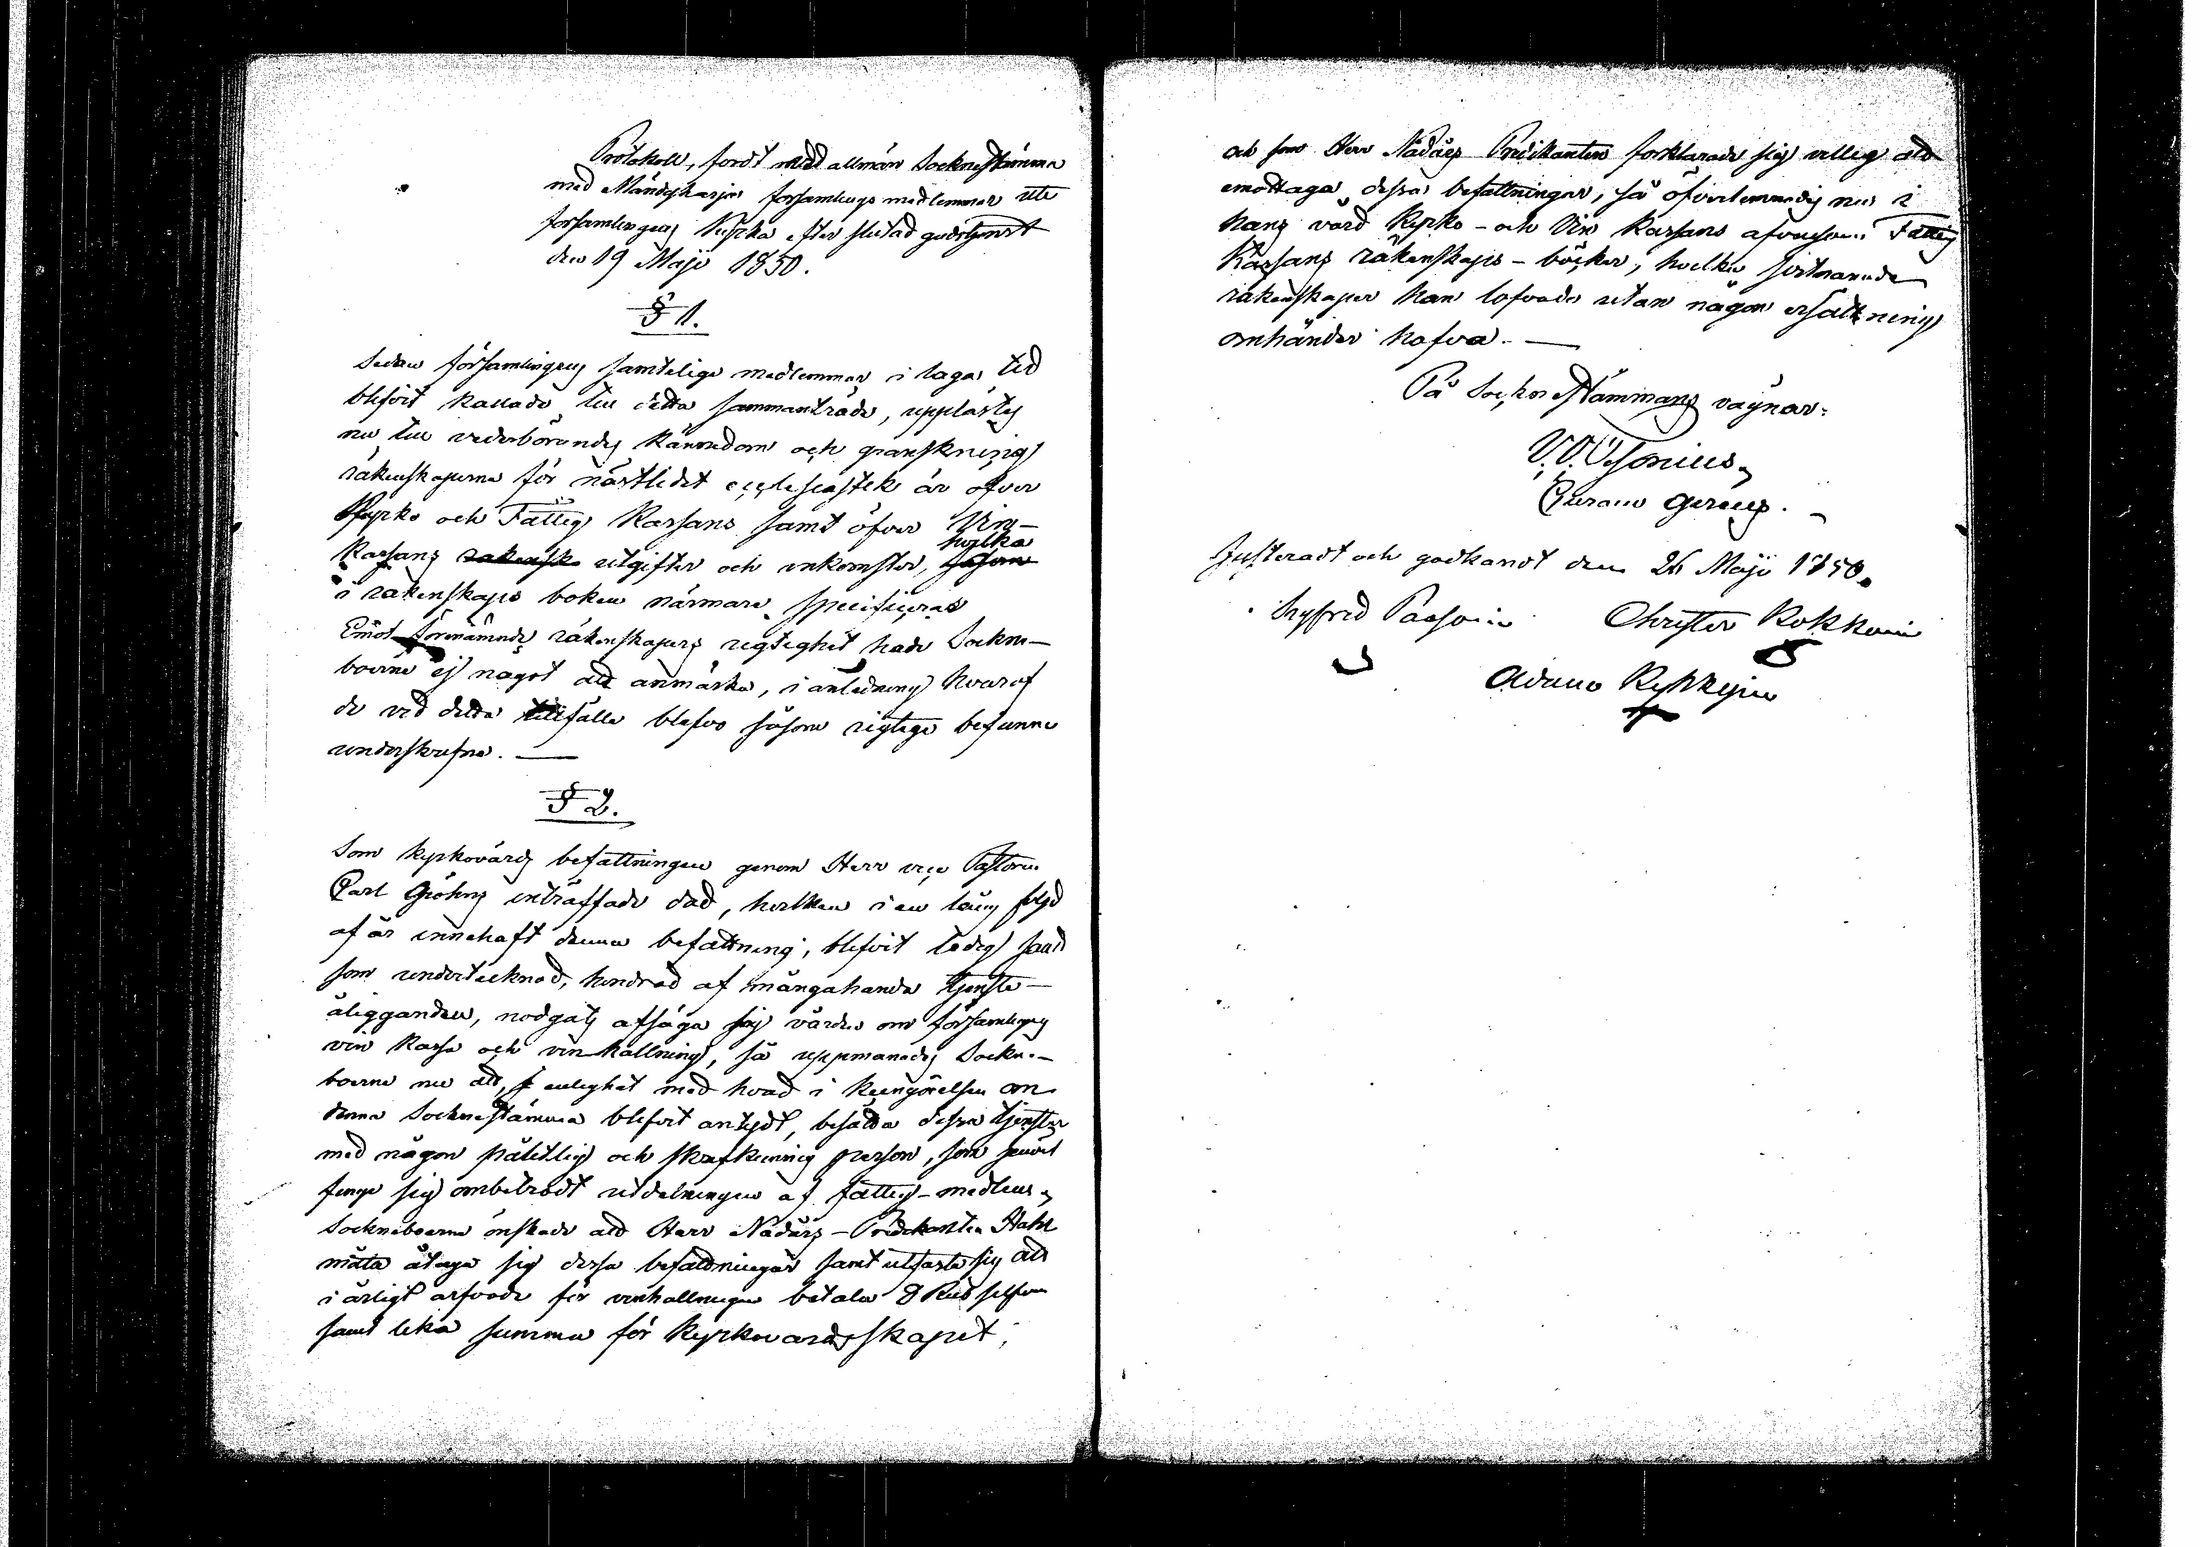 Protokoll, fördt med allmän Sockne stämma
med Mäntyharju församlings medlemmar uti
församlingens Kyrka efter slutad gudstjenst
den 19 Maji 1850.
§ 1.
Sedan församlingens samtelige medlemmar i laga tid
blifvit kallade till detta sammanträde, upplästes
nu till vederbörandes kännedom och granskning
räkenskaperna för nästledet ecclesiastik år öfver
Kyrko och Fattig Kassans samt öfver Vin-
Kassans räkensk utgifter och inkomster, såsom hvilka
i räkenskaps boken närmare specificerats
Emot förenämnde räkenskapers rigtighet hade Sockne-
boerne ej något att anmärka, i anledning hvaraf
de vid detta tillfälle blefvo såsom rigtige befunne
underskrefne. —
§ 2.
Som kyrkovärds befattningen genom Herr vice Pastorn
Carl Gröhns inträffade död, hvilken i en lång följd
af år innehaft denna befattning, blefvit ledig samt
som undertecknad, hindrad af mångahanda tjenste-
åligganden, nödgats afsäga sig vården om församlings
vin kassa och vin hållning, så uppmanades Sockne-
boerne nu att, i enlighet med hvad i kungörelsen om
denna Sockne stämma blifvit antydt, besätta dessa tjenster
med någon pålitlig och skrifkunnig person, som jemväl
finge sig ombetrodt utdelningen af fattig-medlen,
Socknebоerne önskade att Herr Nådårs-Predikanten
måtte åtaga sig dessa befattningar samt utfäste sig att
i årligt arfvode för vinhållningen betala 8 Rub silfver
samt lika summa för Kyrkovärdsskapet;
och som Herr Nådårs Predikanten förklarade sig villig att
emottaga dessa befattningar, så öfverlemnades nu i
hans vård Kyrko- och Vin Kassans äfvensom Fattig
Kassans räkenskaps-böcker, hvilka sistnämnde
räkenskaper han lofvade utan någon ersättning
omhänder hafva. —
På Sockne stämmans vägnar:
Justeradt och godkändt den 26 Maji 1850.
Sigfrid Christer Kokkoin
Adam